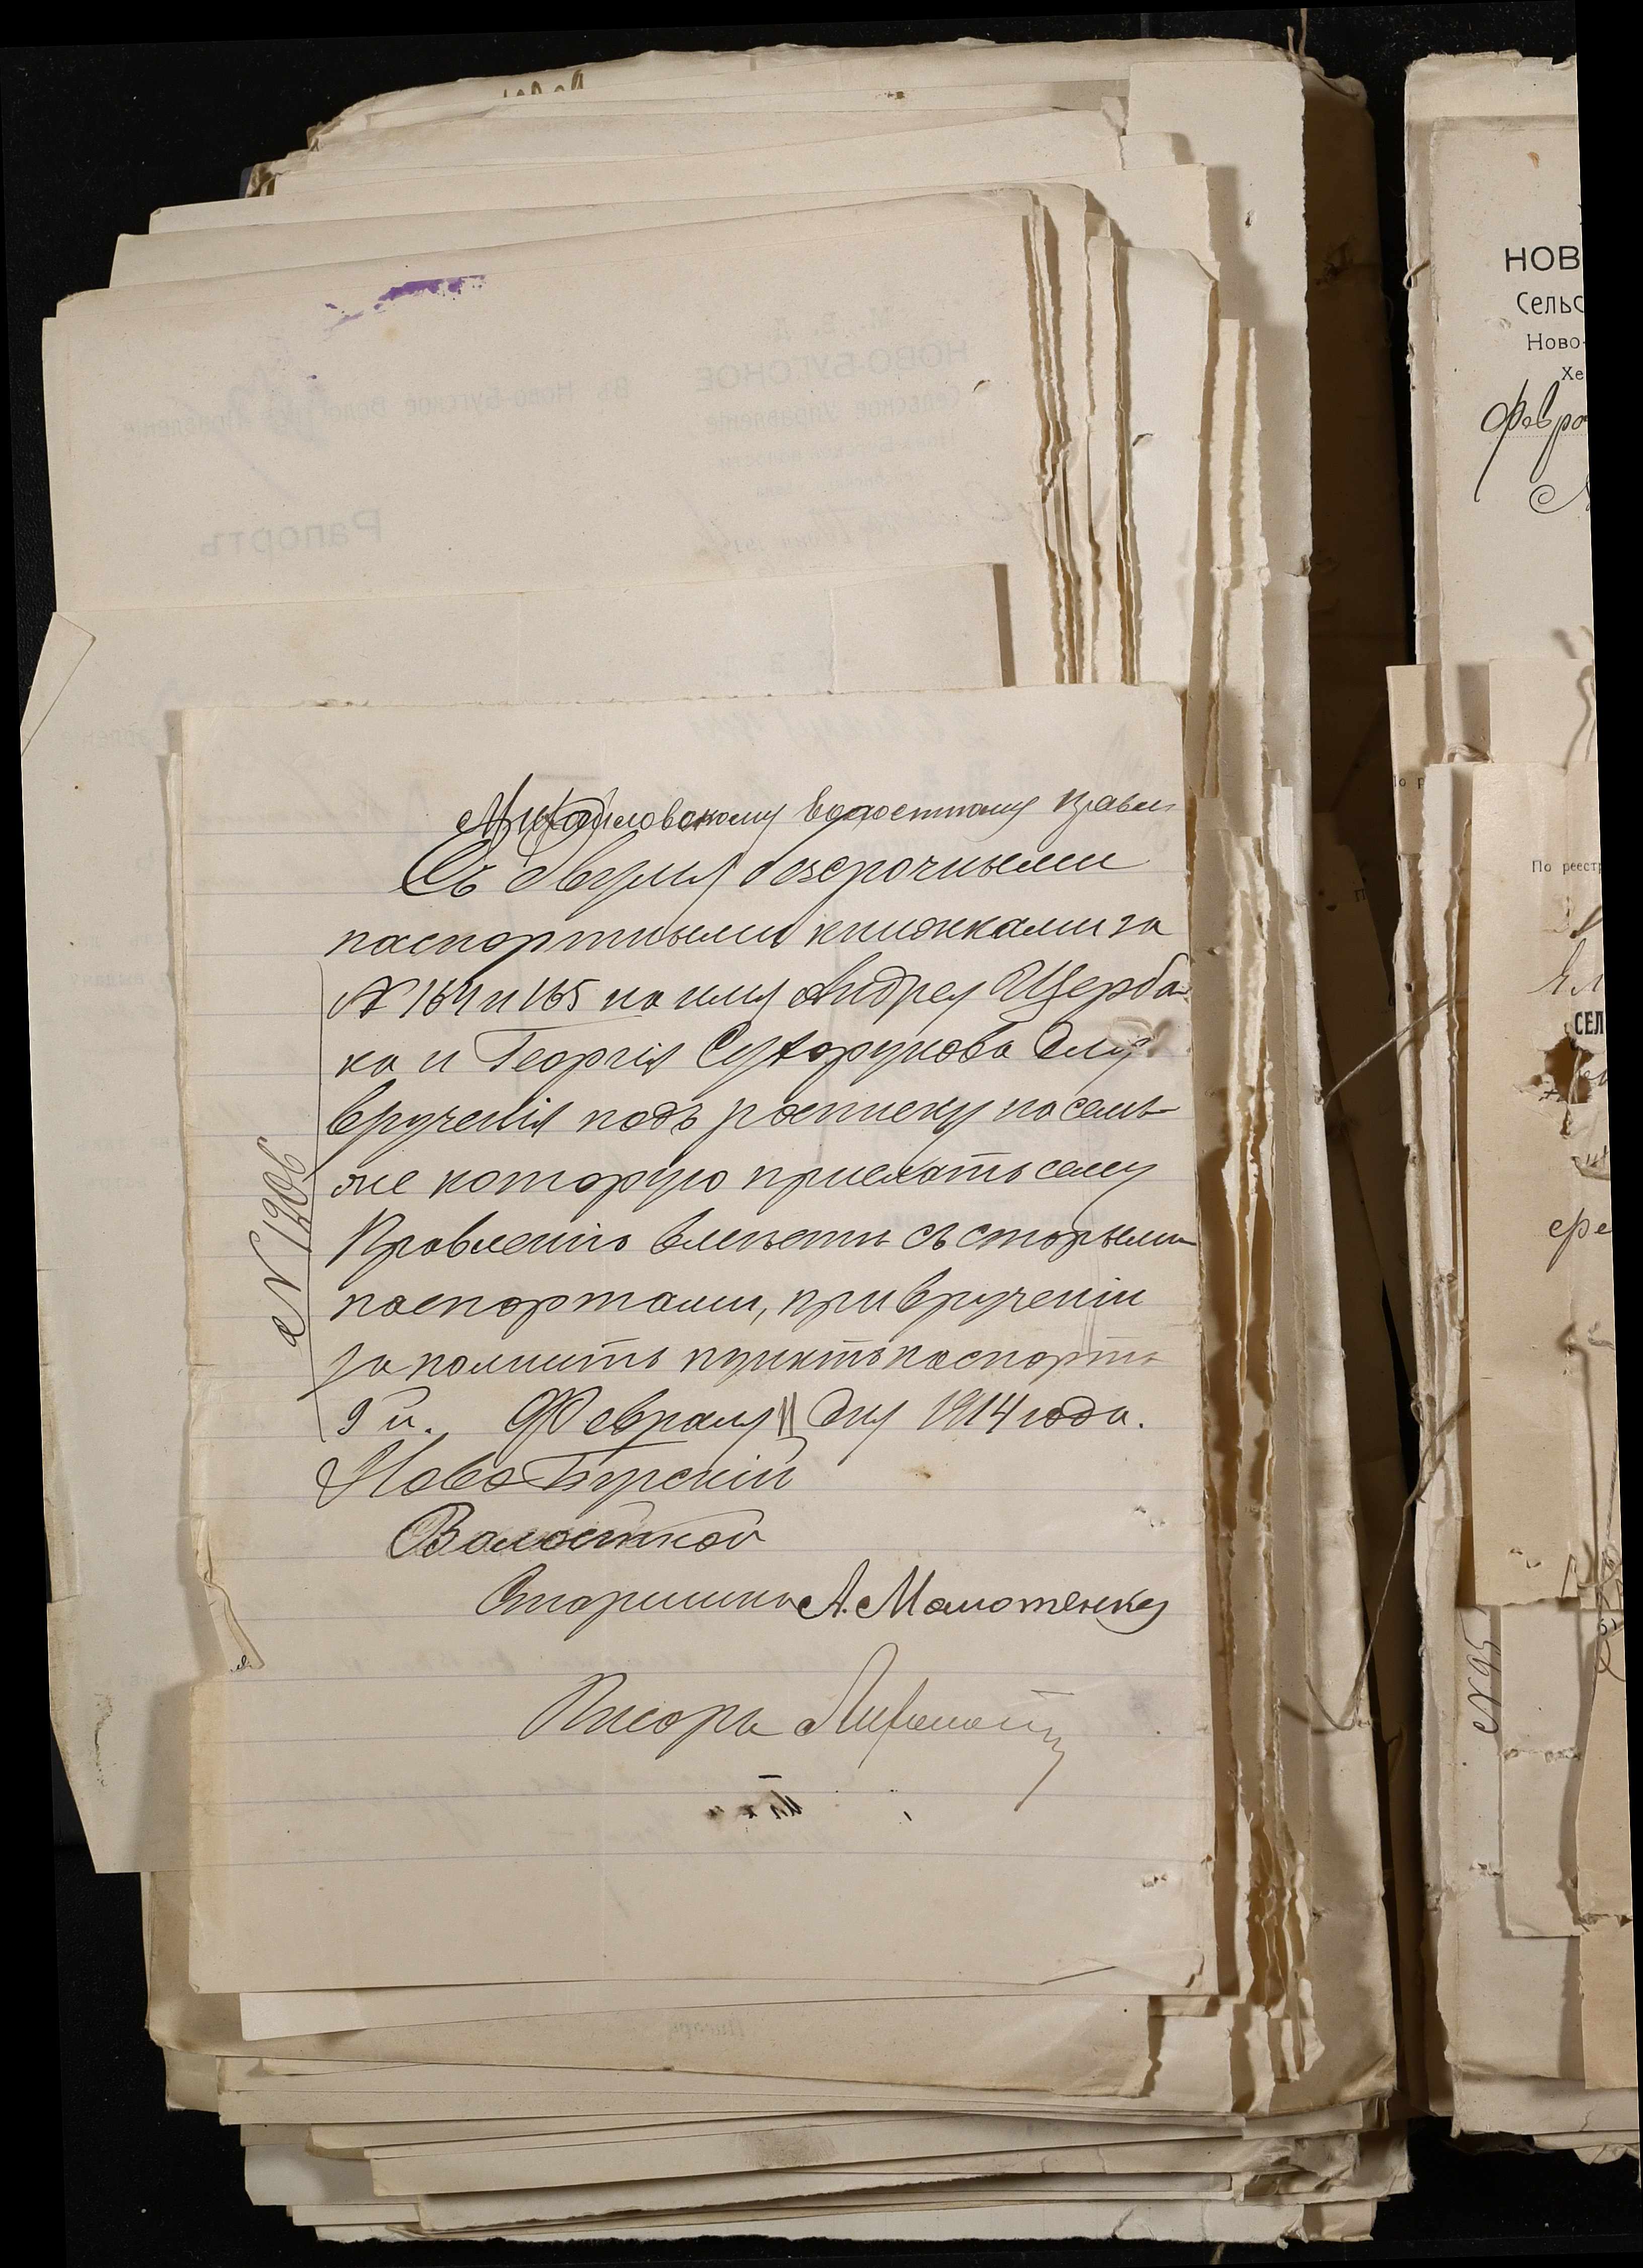 Михайловскому Волостному Правл
Съ двумя безсрочными
паспортными книжками за
№ 164 и 165 на имя Андрея Щерба
ка и Георгія Сухорукова для
врученія подъ росписку на семъ
же которую прислать сему
Правленію вмѣстѣ съ старыми
паспортами, при врученіи
заполнить пунктъ паспорта
9 й. Февраля 11 дня 1914 года.
Ново Бугскій
Волостной
Старшина А. Мамотенко
Писарь
№ 1206
НОВО-БУГСКОЕ
Сельское Управленіе
Въ Ново-Бугское Волостное Правленіе
Рапортъ
НОВ
Сельс
Ново-
Хе
Февра
По реест
СЕЛ
№ 95